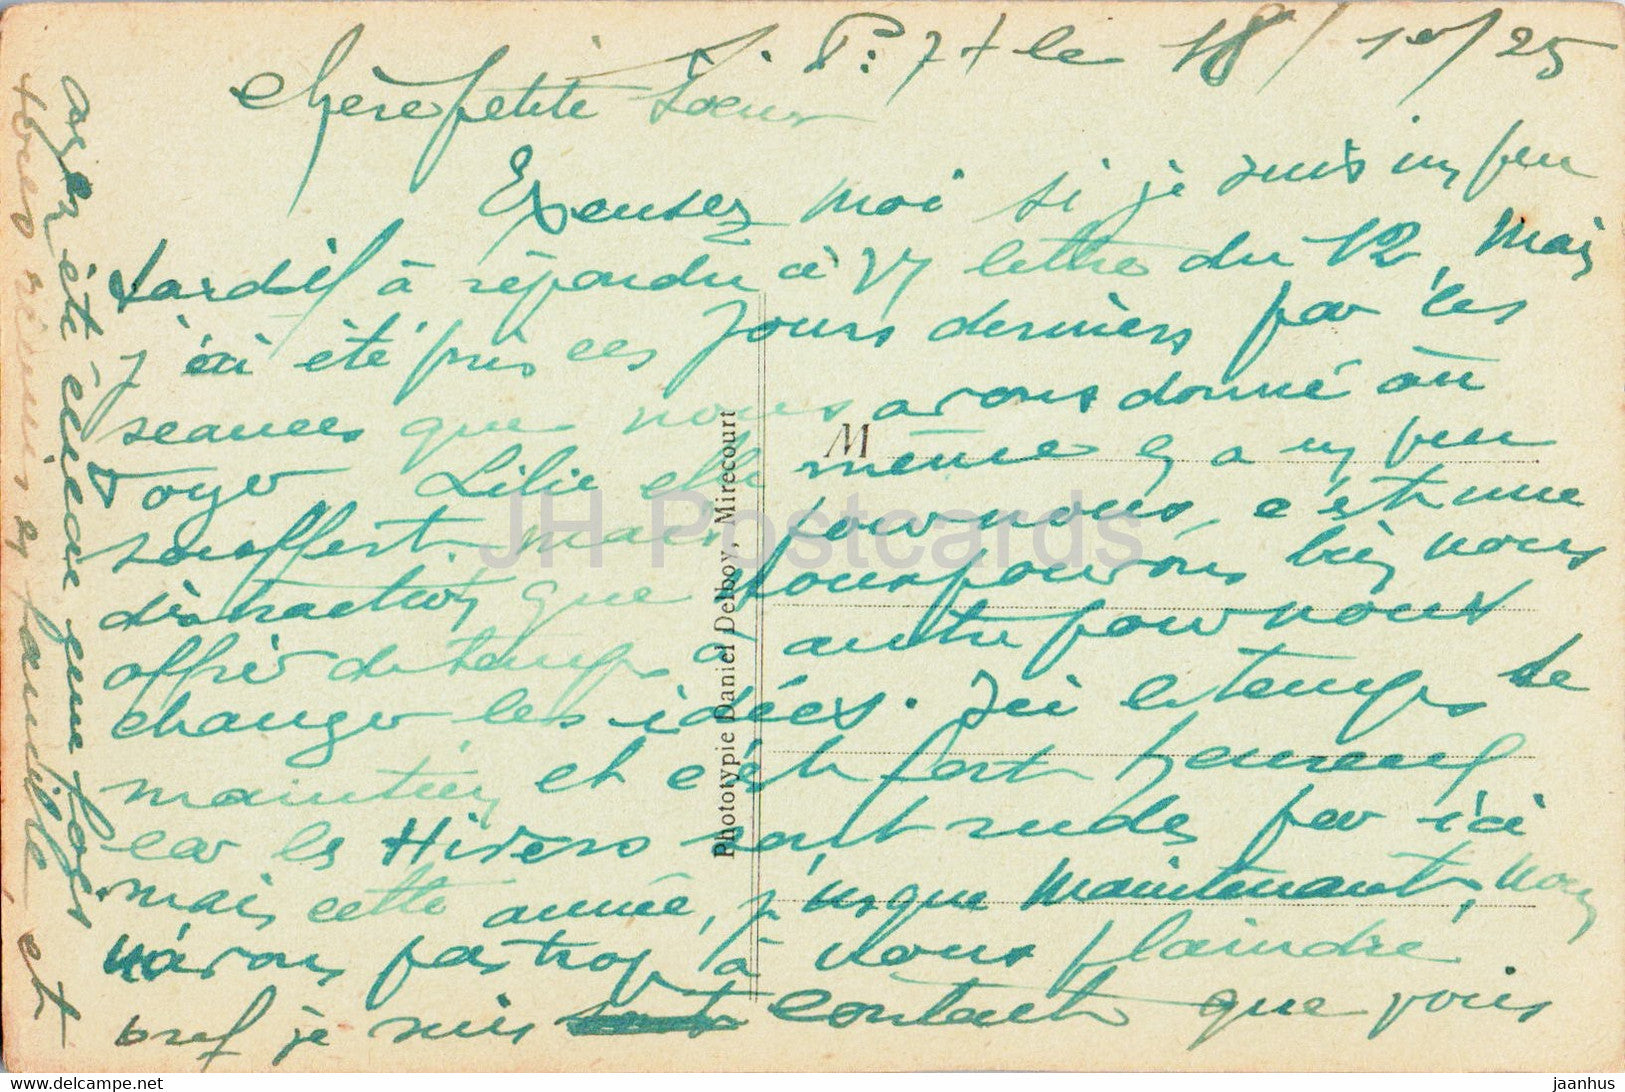 S. P. 77 le 18/10/25
Chère petite Soeur
Excusez moi si je suis un peu
tardif à répondre à V/ lettre du 12, Mais
j'ai été pris ces jours derniers par les
seances que nous avons donné au
Foyer Lilie elle même y a un peu
souffert. mais pour nous, c'est une
distraction que nous pouvons bien nous
offrir de temps à autre pour nous
changer les idées. Ici le temps se
maintien et c'est fort heureux
car les Hivers sont rudes par ici
mais cette année, j'usque maintenant, nous
n'avons pas trop à nous plaindre
bref je suis contact que vous
ayez été une fois
tous réunis en famille, et
M
Photypie Daniel Delboy, Mirecourt
JH Postcards
https://www.delcampe.net
jaanhus